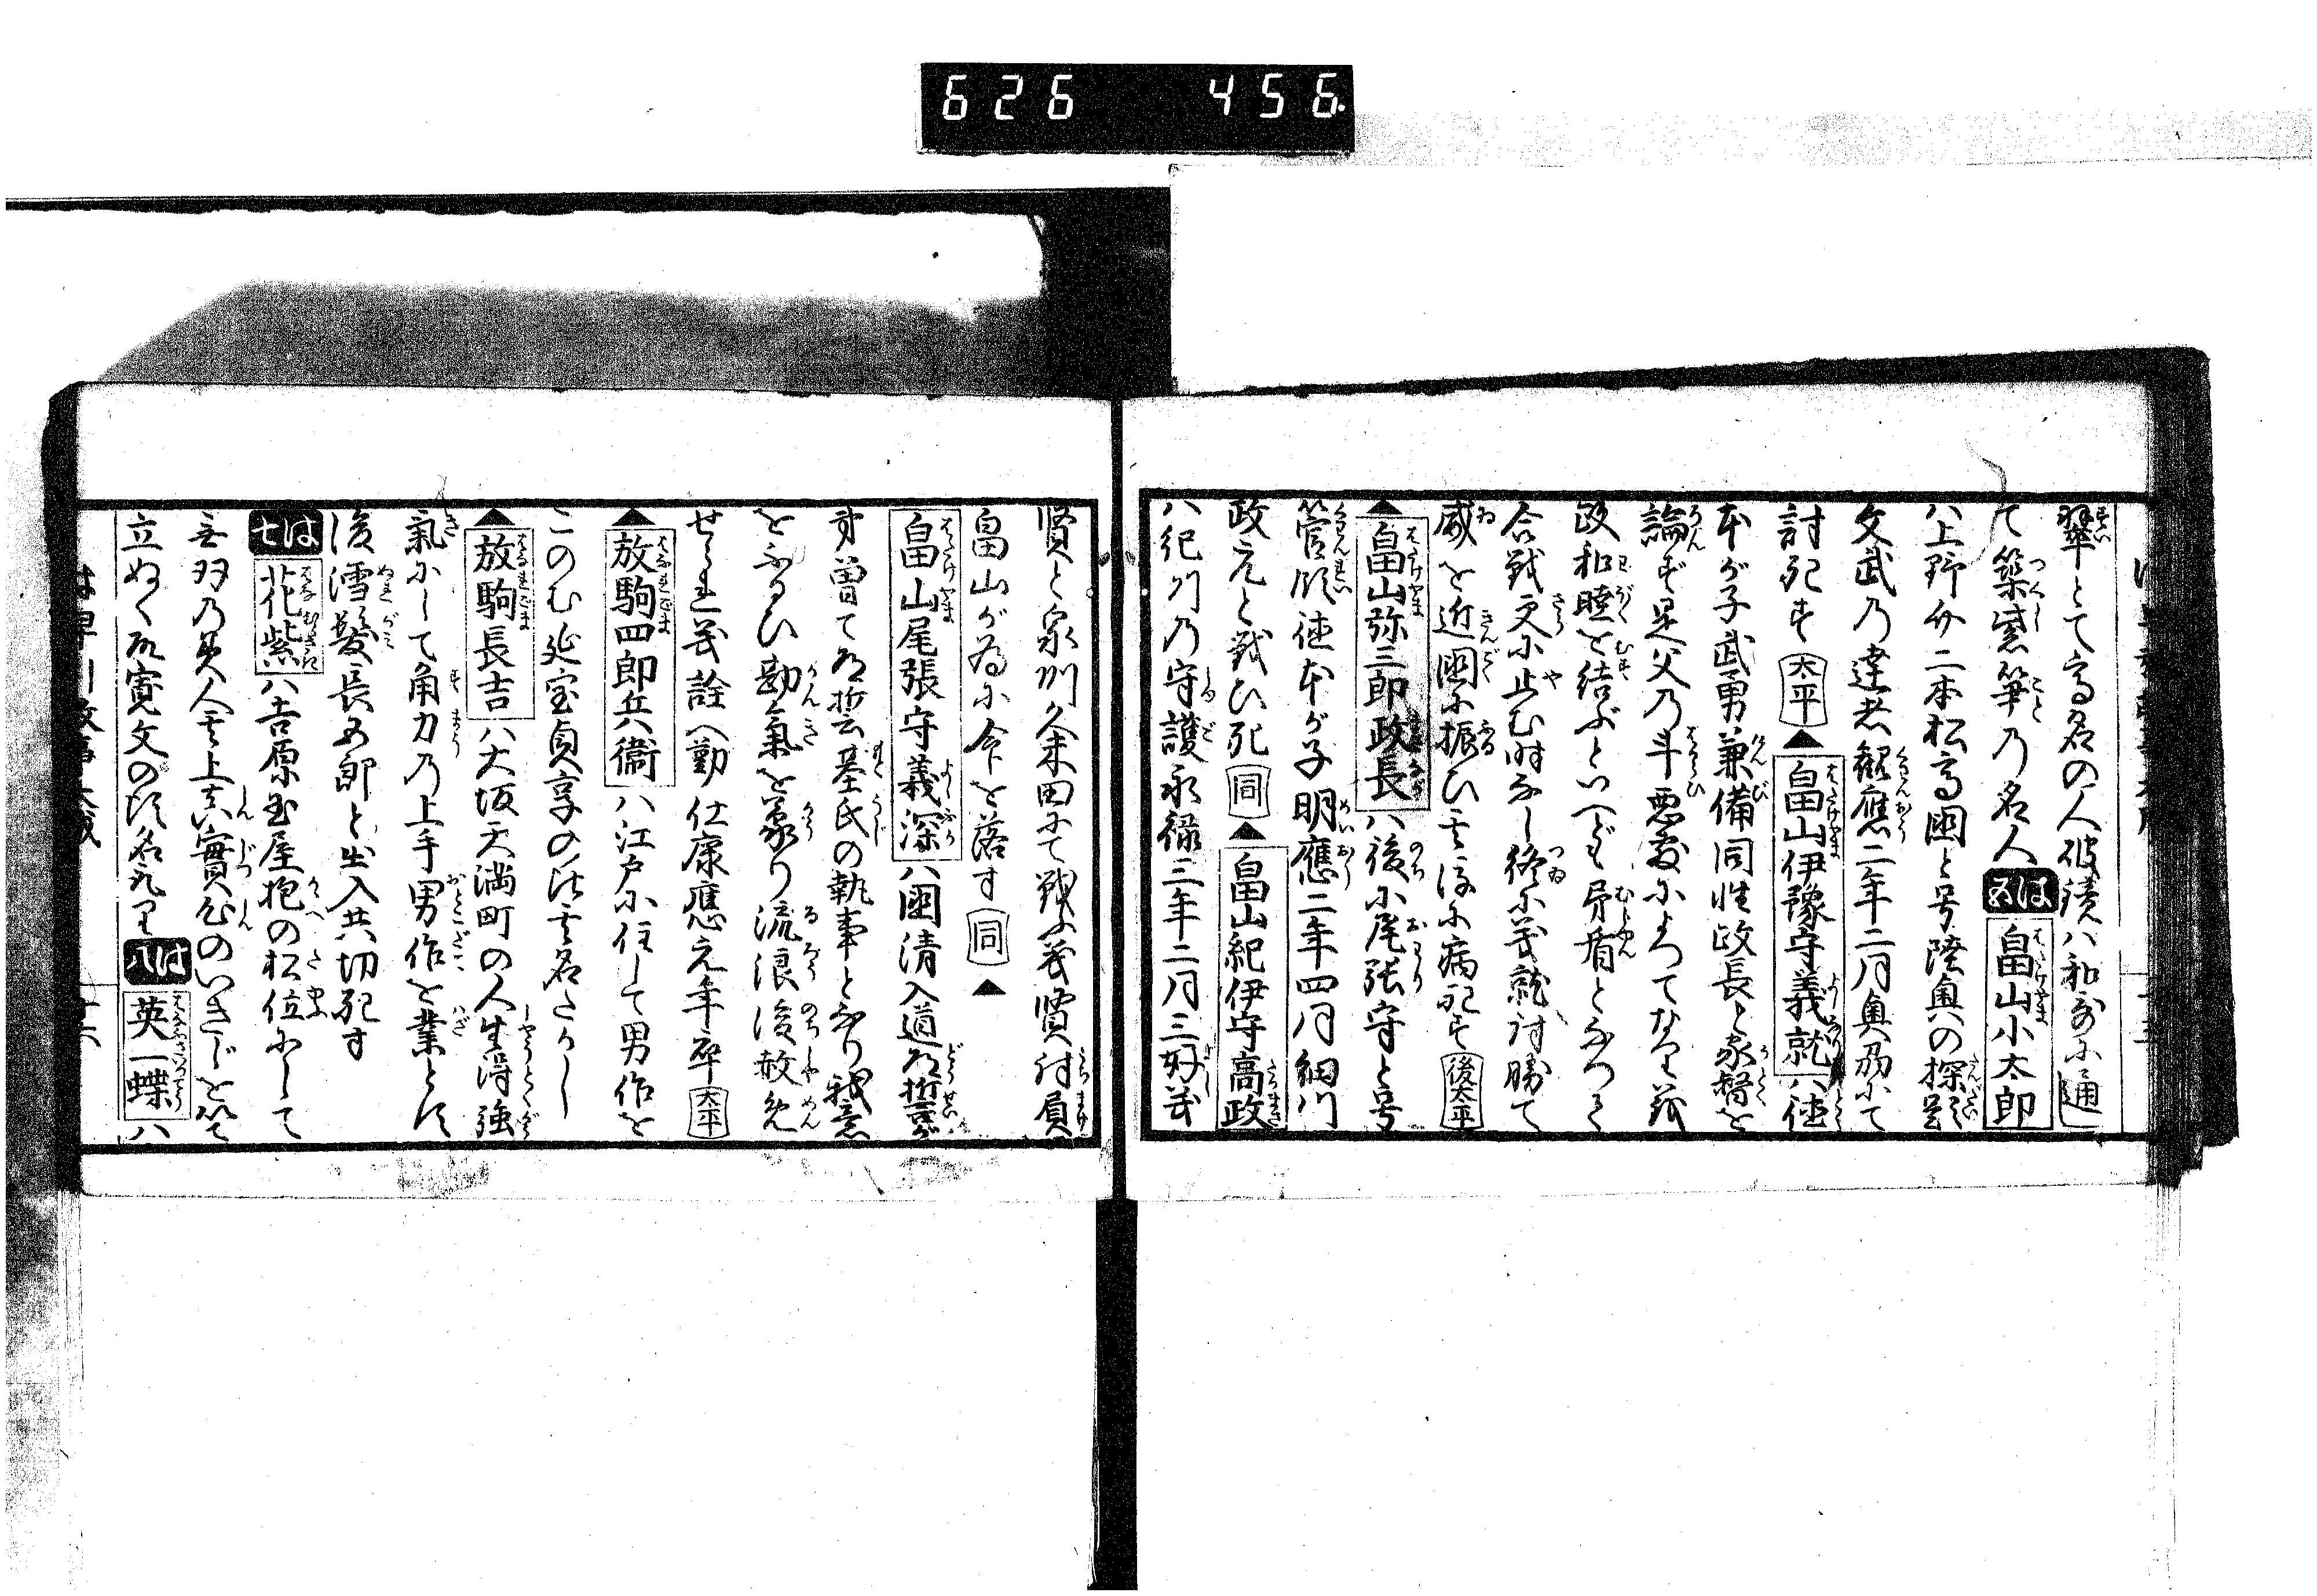 626 456
翠とて高名の人彼錺ハ和哥に通
て築紫箏乃名人 はお 畠山小太郎
ハ上野介二本松高国と号陸奥の探題
文武乃達者観應二年二月奥刕にて
討死す 太平 ▲畠山伊豫守義就ハ徳
本が子武勇兼備同性政長と家督を
論ず是父乃斗悪敷によつてなり義
政和睦を結ぶといへども矛盾となつて
合戦更に止む時なし終に義就討勝て
威を近国に振ひ其後に病死す 後太平
▲畠山弥三郎政長ハ後に尾張守と号
管領徳本が子明應二年四月細川
政元と戦ひ死 同 ▲畠山紀伊守高政
ハ紀刕乃守護永禄三年二月三好義
賢と泉州久米田にて戦ふ義賢討負
畠山が為に命を落す 同 ▲
畠山尾張守義深ハ国清入道道誓が
弟曽て道誓基氏の執事となり我意
をふるひ勘氣を蒙り流浪後赦免
せられ義詮へ勤仕康應元年卒 太平
▲放駒四郎兵衞ハ江戸に住して男作を
このむ延宝貞享の比其名たかし
▲放駒長吉ハ大坂天満町の人生得強
氣にして角力乃上手男作を業とす
後濡髪長五郎と出入共切死す
は七 花紫ハ吉原玉屋抱の松位にして
無双乃美人其上真實心のいきぢを以て
立ぬく故寛文の頃名高し は八 英一蝶ハ